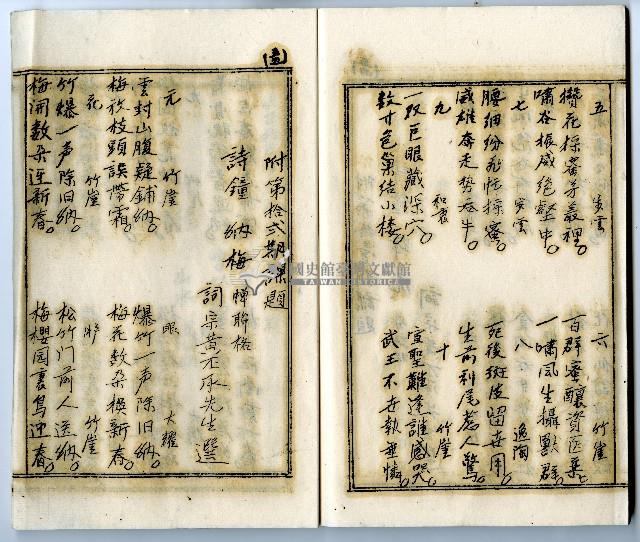 五 步雲
攢花採蕊芽叢裡。
嘯谷振威絕壑中。
六 竹崖
百群蜜釀資医藥。
一嘯风生攝獸群。
七 步雲
腰细纷飛忙採蜜。
威雄奔走势吞牛。
八 逸陶
死後斑皮留世用。
生前利尾惹人驚。
九 和衷
一双巨眼藏深穴。
数寸色巢结小楼。
十 竹崖
宣聖難逢誰感哭。
武王不在執垂憐。
附第拾弍期課題
詩鐘 纳梅 蟬联格
詞宗黄丕承先生選
元 竹崖
雲封山腹疑鋪纳。
梅放枝頭誤帶霜。
眼 大耀
爆竹一声除旧纳。
梅花数朵換新春。
花 竹崖
竹爆一声除旧纳。
梅開数朵迎新春。
竹崖
松竹门前人送纳。
梅櫻园裏鸟迎春。
國史館臺灣文獻館
TAIWAN HISTORICA